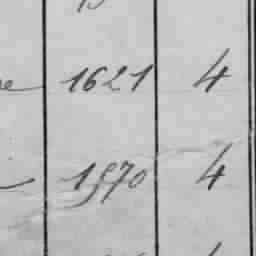 1621 4
1570 4